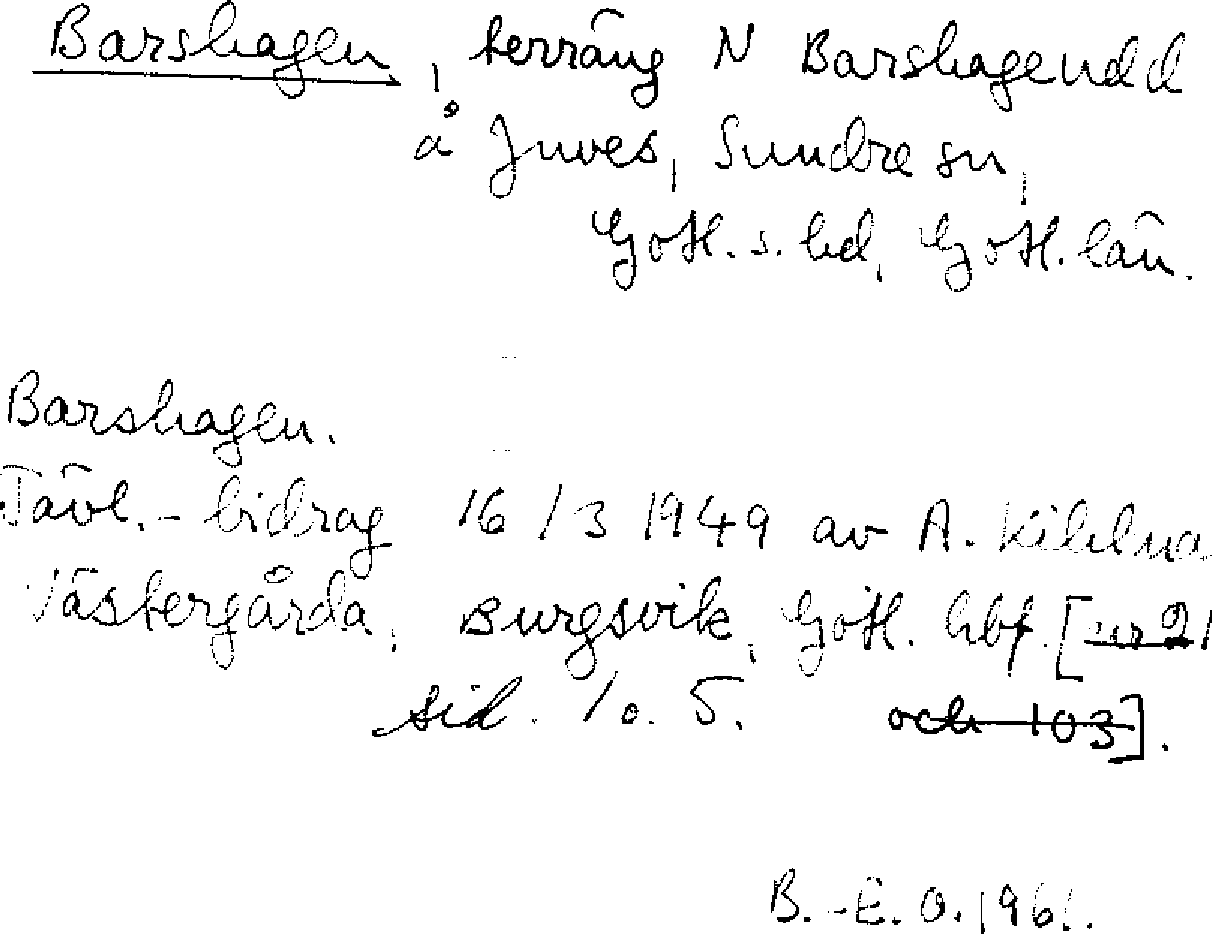 Barshagen, terräng N Barshagenudd
å Juves, Sundre sn,
Gotl. s. hd, Gotl. län.
Barshagen.
Tävl.-bidrag 16/3 1949 av A.
Västergårda, Burgsvik, Gotl. hbf. [nr 21
sid. 1 o. 5. och 103].
B.-E. O. 1961.